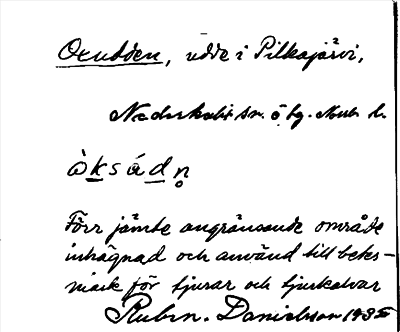 Oxudden, udde i Pilkajärvi,
Nederkalix sn. ö fg. Nub. l.
òksádn
Förr jämte angränsande område
inhägnad och använd till betes-
mark för tjurar och tjurkalvar
Rubin. Danielsson 1935